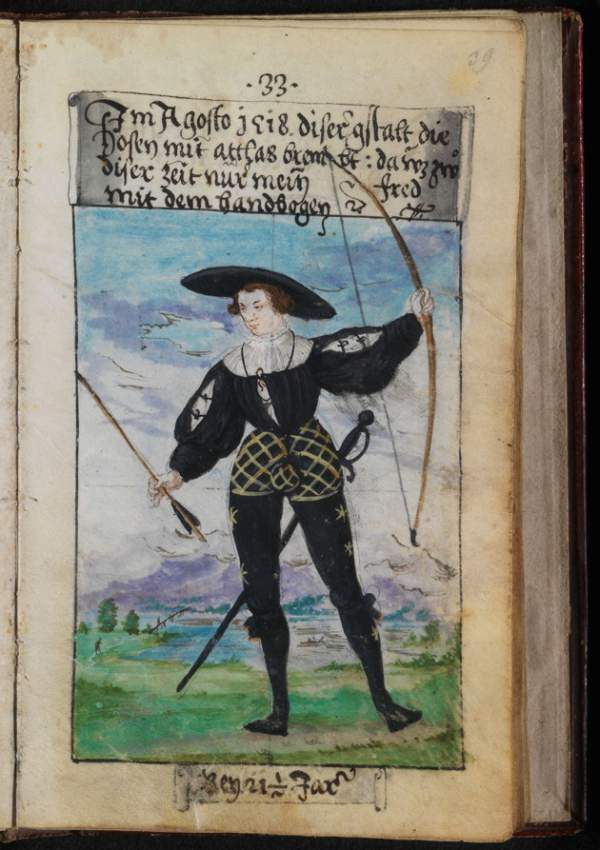 39
·33·
Im Agosto 1518. diser gstalt, die
Hosen mit atthas brembt: da wz zuo
diser Zeit nur mein fred
mit dem handbogen
Bey 21½ Jar